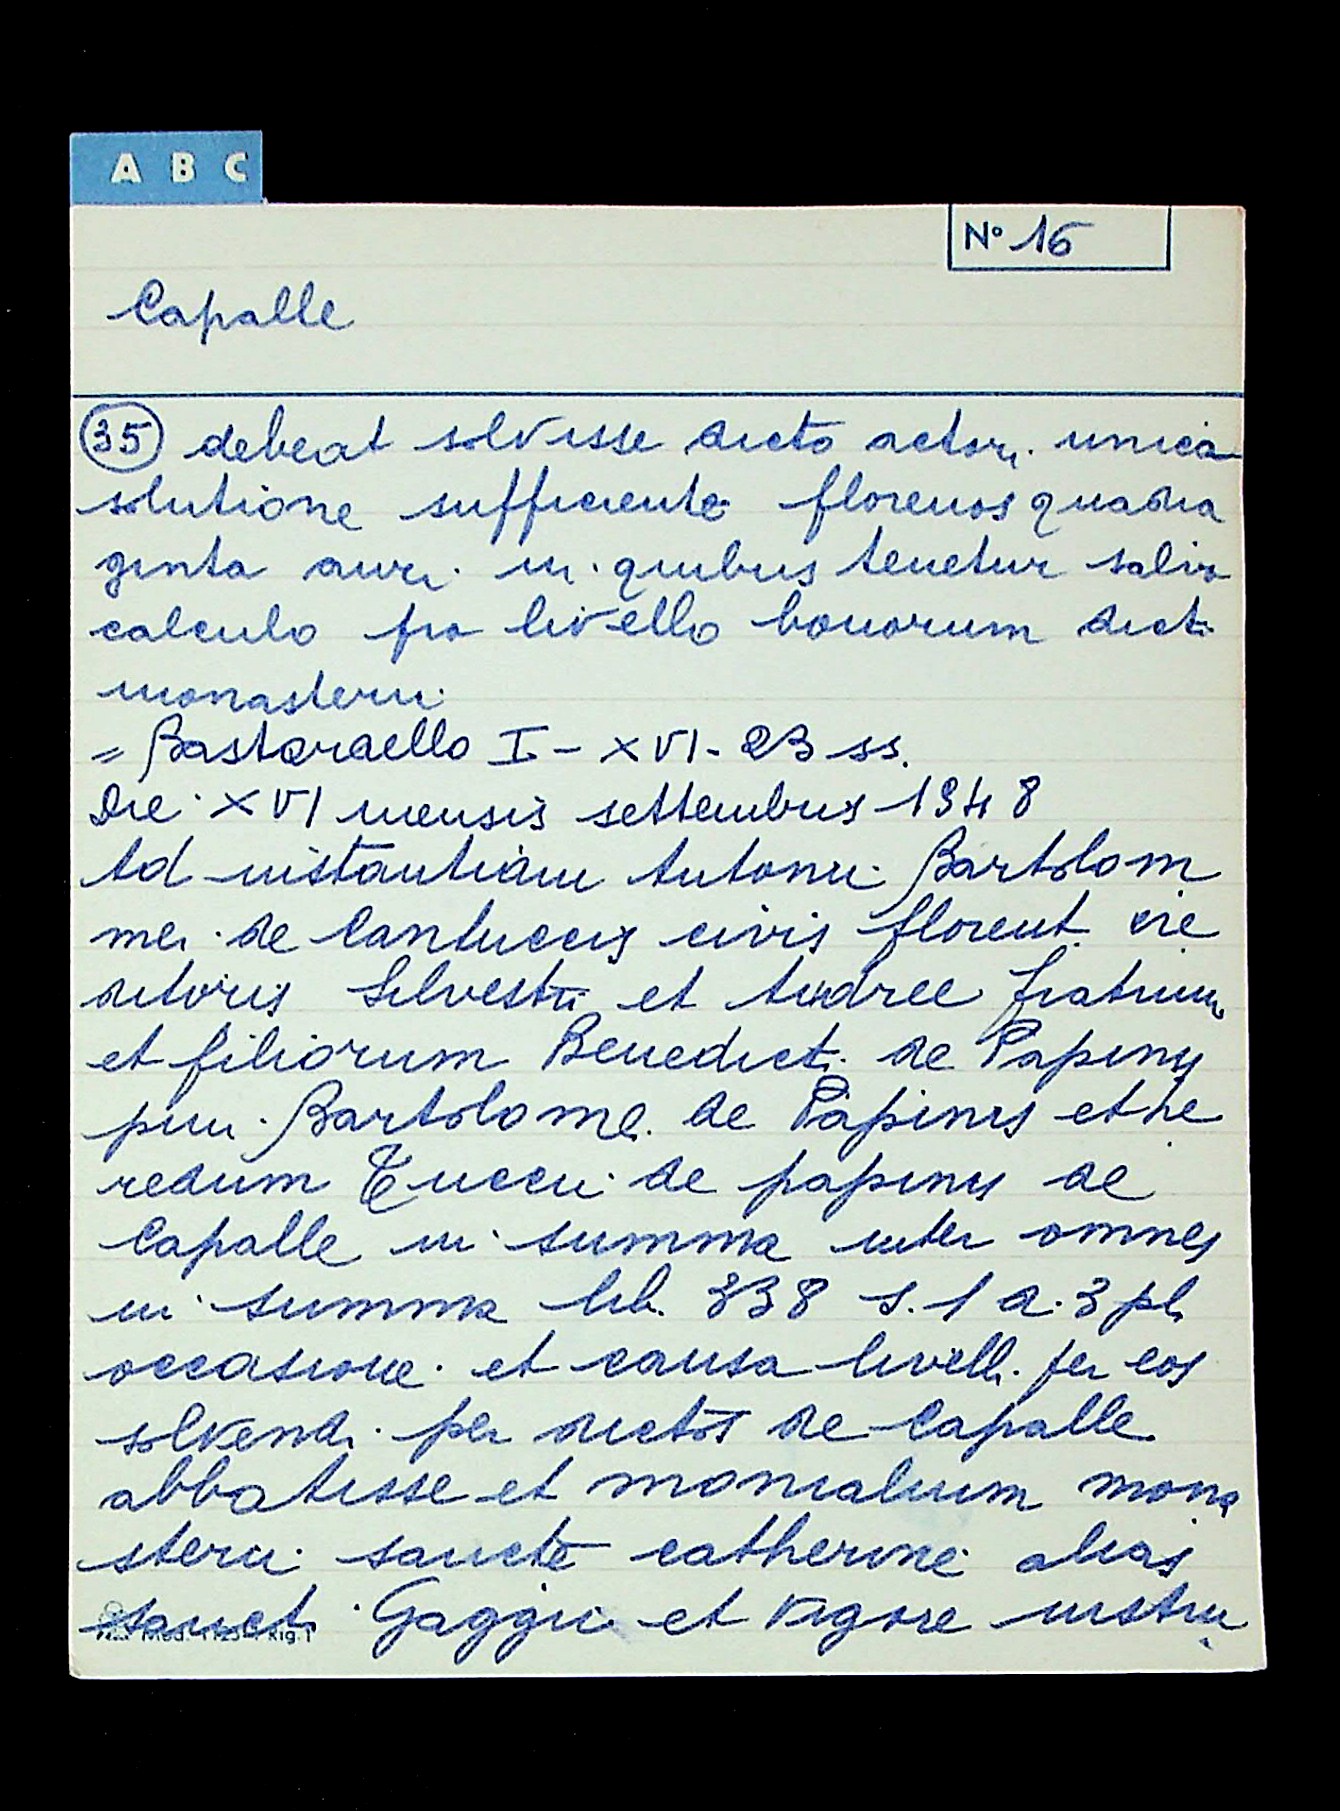 A B C
Nº 16
Capalle
35 debeat solvisse dicto actori unica
solutione sufficiente florenos quadra
ginta auri in quibus tenetur salvo
calculo pro livello bonorum dicti
monasterii
= Bastardello I - XVI - 23 ss.
Die XVI mensis settembris 1948
Ad instantiam Antonii Bartolom
mei de Cantuccis civis florent. cre
ditoris Silvestri et Andree fratrum
et filiorum Benedicti de Papinis
pieri Bartolomei de Papinis et he
redum Tuccii de papinis de
Capalle in summa inter omnes
in summa lib. 338 s. 1 d. 3 pl.
occasione et causa livelli per eos
solvendi per dictos de Capalle
abbatisse et monialium mona
sterii sancte catherine alias
sancti Gaggii et vigore instru
Mod. Rig. 1